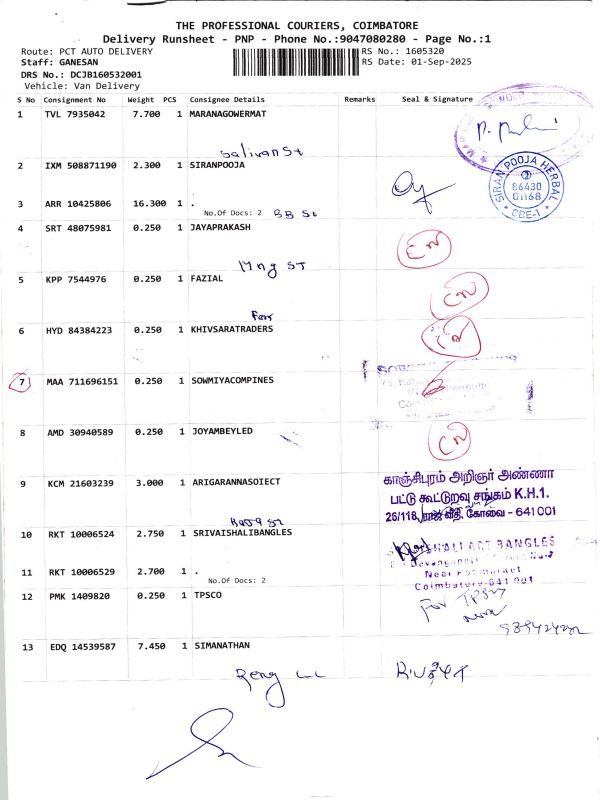 THE PROFESSIONAL COURIERS, COIMBATORE
Delivery Runsheet - PNP - Phone No.:9047080280 - Page No.:1
Route: PCT AUTO DELIVERY RS No.: 1605320
Staff: GANESAN RS Date: 01-Sep-2025
DRS No.: DCJB160532001
Vehicle: Van Delivery
S No Consignment No Weight PCS Consignee Details Remarks Seal & Signature
1 TVL 7935042 7.700 1 MARANAGOWERMAT
2 IXM 508871190 2.300 1 SIRANPOOJA
SIRAN POOJA HERBAL
86430
01168
CBE-1
3 ARR 10425806 16.300 1 .
No.Of Docs: 2 BB St
4 SRT 48075981 0.250 1 JAYAPRAKASH
CN
Mng ST
5 KPP 7544976 0.250 1 FAZIAL
CN
6 HYD 84384223 0.250 1 KHIVSARATRADERS
CN
7 MAA 711696151 0.250 1 SOWMIYACOMPINES
8 AMD 30940589 0.250 1 JOYAMBEYLED
CN
9 KCM 21603239 3.000 1 ARIGARANNASOIECT
காஞ்சிபுரம் அறிஞர் அண்ணா
பட்டு கூட்டுறவு சங்கம் K.H.1.
26/118, ராஜ வீதி, கோவை - 641 001
10 RKT 10006524 2.750 1 SRIVAISHALIBANGLES
ART BANGLES
Near Pot Market
Coimbatore-641 001
11 RKT 10006529 2.700 1 .
No.Of Docs: 2
12 PMK 1409820 0.250 1 TPSCO
For
13 EDQ 14539587 7.450 1 SIMANATHAN